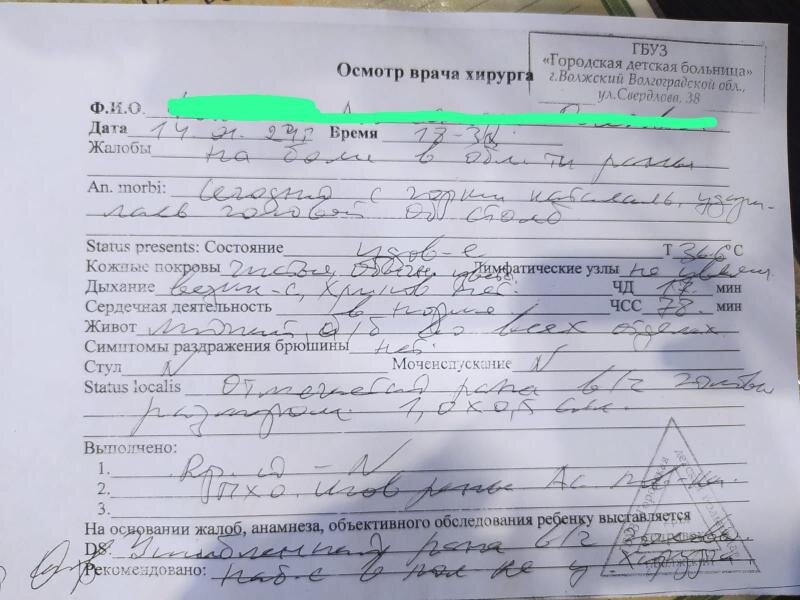 ГБУЗ
«Городская детская больница»
г.Волжский Волгоградской обл.,
ул.Свердлова, 38
Осмотр врача хирурга
Ф.И.О.
Дата 14 01. 24г Время 13-30
Жалобы на боли в области раны
An. morbi: Сегодня с горки каталась, удари-
лась головой об столб
Status presents: Состояние удов-е Т 36,6 °С
Кожные покровы чистые, обычн цвета Лимфатические узлы не увелич.
Дыхание везик-с, хрипов нет. ЧД 17 мин
Сердечная деятельность в норме ЧСС 78. мин
Живот мягкий, б/б во всех отделах
Симптомы раздражения брюшины нет.
Стул N Мочеиспускание N
Status localis Отмечается рана в/ч головы
размером 1,0х0,5 см.
Выполнено:
1. - N
2. ПХО. раны Ас.
3.
На основании жалоб, анамнеза, объективного обследования ребенку выставляется
DS: Ушибленная рана в/ч головы
Рекомендовано: наб-е в пол-ке у хирурга